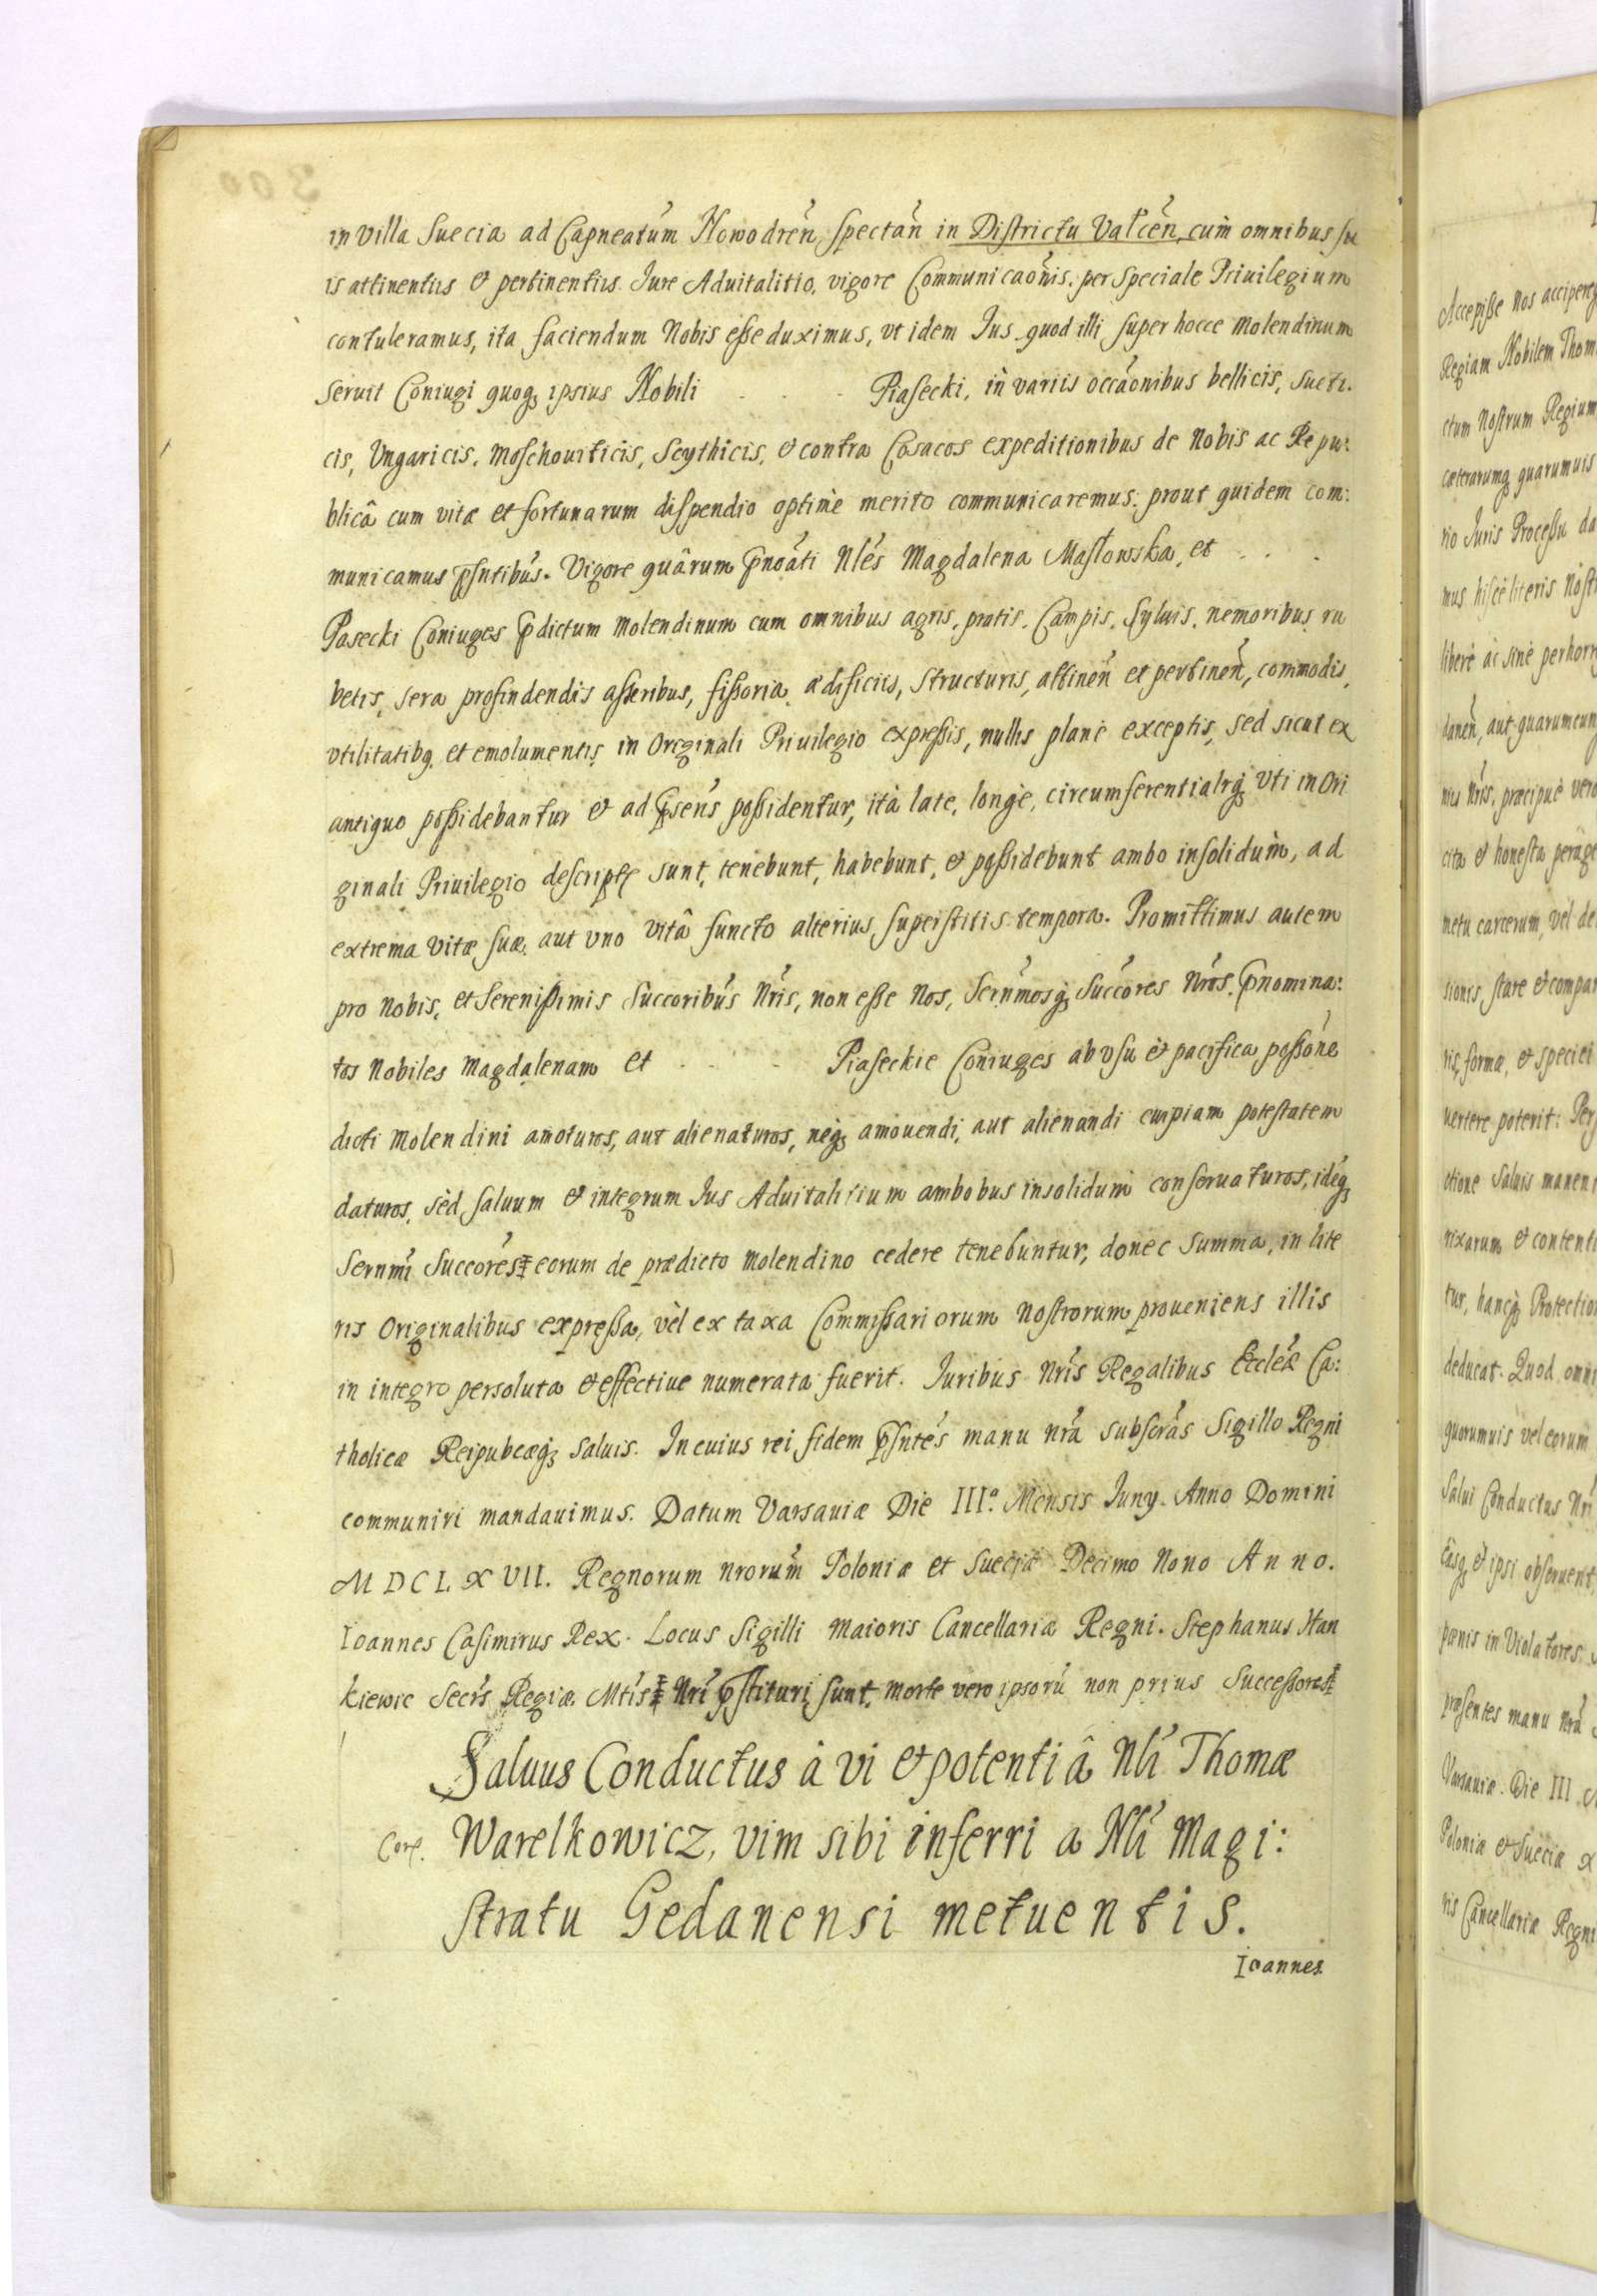 in Villa Suecia ad Capneatum Nowodren, spectan in Districtu Valcen, cum omnibus su
is attinentiis et pertinentiis Jure Aduitalitio, vigore Communicaonis, per speciale Priuilegium
contuleramus, ita faciendum Nobis esse duximus, vt idem Jus quod illi super hocce Molendinum
seruit Coniugi quoq ipsius Nobili . . . Piasecki, in variis occaonibus bellicis, Sueti-
cis, Vngaricis, Moschouiticis, Scythicis, et contra Cosacos expeditionibus de Nobis ac Repu:
blicâ cum vitæ et fortunarum dispendio optimè merito communicaremus: prout quidem com:
municamus psntibus. Vigore quârum pnoati Nles Magdalena Masłowska, et . . .
Pasecki Coniuges pdictum Molendinum cum omnibus agris, pratis, Campis, Syluis, nemoribus, ru
betis, sera profindendis asseribus, fissoria, ædificiis, structuris, attinen et pertinen, commodis,
vtilitatibq, et emolumentis in Originali Priuilegio expressis, nullis planè exceptis, sed sicut ex
antiquo possidebantur et ad psens possidentur, ità late, longè, circumferentialrq, Vti in Ori
ginali Priuilegio descripte sunt, tenebunt, habebunt, et possidebunt ambo insolidùm, ad
extrema vitæ suæ, aut vno vitâ functo alterius superstitis tempora. Promittimus autem
pro Nobis, et Serenissimis Succoribus Nris, non esse Nos, Sernmosq Succores Nros, pnomina:
tos Nobiles Magdalenam et . . . Piaseckie Coniuges ab vsu et pacifica possone
dicti Molendini amoturos, aut alienaturos, neq amouendi, aut alienandi cuipiam potestatem
daturos, sèd saluum et integrum Jus Aduitalitium ambobus insolidum conseruaturos, ideq
Sernmi Succores eorum de prædicto Molendino cedere tenebuntur, donec summa, in lite
ris Originalibus expressa, vèl ex taxa Commissariorum nostrorum proueniens illis
in integro persoluta et effectiue numerata fuerit. Juribus Nris Regalibus Ecclæ Ca:
tholicæ Reipubcæq saluis. In cuius rei fidem psntes manu nra subscras Sigillo Regni
communiri mandauimus. Datum Varsauiæ Die IIIa Mensis Juny. Anno Domini
MDCLXVII. Regnorum nrorum Poloniæ et Sueciæ Decimo Nono Anno.
Ioannes Casimirus Rex. Locus Sigilli Maioris Cancellariæ Regni. Stephanus Han
kiewic Secrs Regiæ Mtis Nri pstituri sunt, morte vero ipsorũ non prius Successores
Saluus Conductus à vi et potentiâ Nli Thomæ
Warelkowicz, vim sibi inferri a Nli Magi:
stratu Gedanensi metuentis.
Ioannes
Accepisse Nos acciper
Regiam Nobilem Thom
ctum Nostrum Regium
cæterarumq quarumuis
rio Juris Processu da
mus hisce literis Nost
liberè ac sine perhor
danen, aut quarumcun
niu Nris, præcipuè vero
cita et honesta perag
metu carcerum, vèl de
sionis, stare et compa
ris, formæ, et speciei
uertere poterit: Per
ctione Saluis manen
rixarum et contenti
tur, hancq Protectio
deducat. Quod omni
quorumuis vel eorum
Salui Conductus Nri
Easq et ipsi obseruent,
pœnis in Violatores.
præsentes manu Nra
Varsauiæ. Die III
Poloniæ et Sueciæ X
ris Cancellariæ Regni